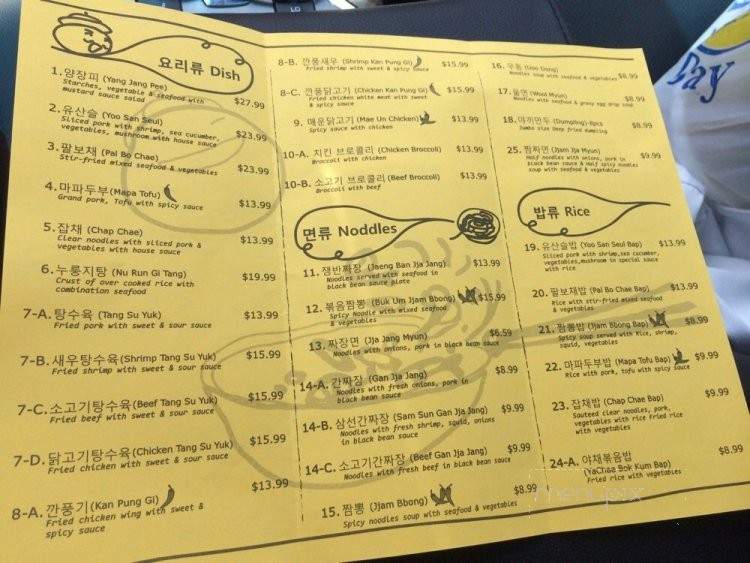 요리류 Dish
1. 양장피 (Yang Jang Pee)
Starches, vegetable & seafood with
mustard sauce salad $27.99
2. 유산슬 (Yoo San Seul)
Sliced pork with shrimp, sea cucumber,
vegetables, mushroom with house sauce $23.99
3. 팔보채 (Pal Bo Chae)
Stir-fried mixed seafood & vegetables $23.99
4. 마파두부 (Mapa Tofu)
Grand pork, Tofu with spicy sauce $13.99
5. 잡채 (Chap Chae)
Clear noodles with sliced pork &
vegetables with house sauce $13.99
6. 누룽지탕 (Nu Run Gi Tang) $19.99
Crust of over cooked rice with
combination seafood
7-A. 탕수육 (Tang Su Yuk) $13.99
Fried pork with sweet & sour sauce
7-B. 새우탕수육 (Shrimp Tang Su Yuk) $15.99
Fried shrimp with sweet & sour sauce
7-C. 소고기탕수육 (Beef Tang Su Yuk) $15.99
Fried beef with sweet & sour sauce
7-D. 닭고기탕수육 (Chicken Tang Su Yuk) $15.99
Fried chicken with sweet & sour sauce
8-A. 깐풍기 (Kan Pung Gi) $13.99
Fried chicken wing with sweet &
spicy sauce
8-B. 깐풍새우 (Shrimp Kan Pung Gi) $15.99
Fried shrimp with sweet & spicy sauce
8-C. 깐풍닭고기 (Chicken Kan Pung Gi) $15.99
Fried chicken white meat with sweet
& spicy sauce
9. 매운닭고기 (Mae Un Chicken) $13.99
Spicy sauce with chicken
10-A. 치킨 브로콜리 (Chicken Broccoli) $13.99
Broccoli with chicken
10-B. 소고기 브로콜리 (Beef Broccoli) $13.99
Broccoli with beef
면류 Noddles
11. 쟁반짜장 (Jaeng Ban Jja Jang) $13.99
Noodles served with seafood in
black bean sauce plate
12. 볶음짬뽕 (Buk Um Jjam Bbong) $15.99
Spicy Noodle with mixed seafood
& vegetables
13. 짜장면 (Jja Jang Myun) $6.59
Noodles with onions, pork in black bean sauce
14-A. 간짜장 (Gan Jja Jang) $8.99
Noodles with fresh onions, pork in
black bean sauce
14-B. 삼선간짜장 (Sam Sun Gan Jja Jang) $9.99
Noodles with fresh shrimp, squid, onions
in black bean sauce
14-C. 소고기간짜장 (Beef Gan Jja Jang) $9.99
Noodles with fresh beef in black bean sauce
15. 짬뽕 (Jjam Bbong) $8.99
Spicy noodles soup with seafood & vegetables
16. 우동 (Uoo Dong)
Noodles soup with seafood & vegetables $8.99
17. 울면 (Wool Myun) $8.99
Noodles with seafood & gravy egg drop soup
18. 야끼만두 (Dumpling)-8pcs $8.99
Jumbo size Deep fried dumpling
25. 짬짜면 (Jjam Jja Myun) $9.99
Half noodles with onions, pork in
black bean sauce & Half spicy noodles
soup with seafood & vegetables
밥류 Rice
19. 유산슬밥 (Yoo San Seul Bap) $13.99
Sliced pork with shrimp,sea cucumber,
vegetables,mushroom in special sauce
with rice
20. 팔보채밥 (Pal Bo Chae Bap) $13.99
Rice with stir-fried mixed seafood
& vegetables
21. 짬뽕밥 (Jjam Bbong Bap) $8.99
Spicy soup served with Rice, shrimp,
squid, vegetables
22. 마파두부밥 (Mapa Tofu Bap) $9.99
Rice with pork, tofu with spicy sauce
23. 잡채밥 (Chap Chae Bap) $9.99
Sauteed clear noodles, pork,
vegetables with rice Fried rice
with vegetables
24-A. 야채볶음밥 $8.99
(YaChae Bok Kum Bap)
Fried rice with vegetables
Day
menupix